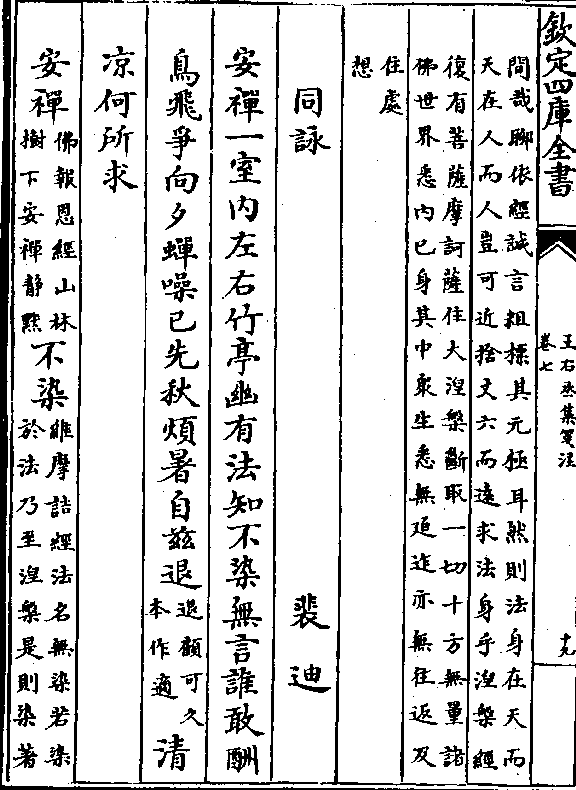 欽定四庫全書
王右丞集箋注
卷七
十九
間哉聊依經誠言粗標其元極耳然則法身在天而
天在人而人豈可近捨丈六而遠求法身乎涅槃經
復有菩薩摩訶薩住大涅槃斷取一切十方無量諸
佛世界悉内已身其中衆生悉無迫迮亦無往返及
住處
想
同詠 裴迪
安禪一室内左右竹亭幽有法知不染無言誰敢酬
鳥飛爭向夕蟬噪已先秋煩暑自兹退退顧可久本作適清
凉何所求
安禪佛報恩經山林樹下安禪靜黙不染維摩詰經法名無染若染於法乃至涅槃是則染著